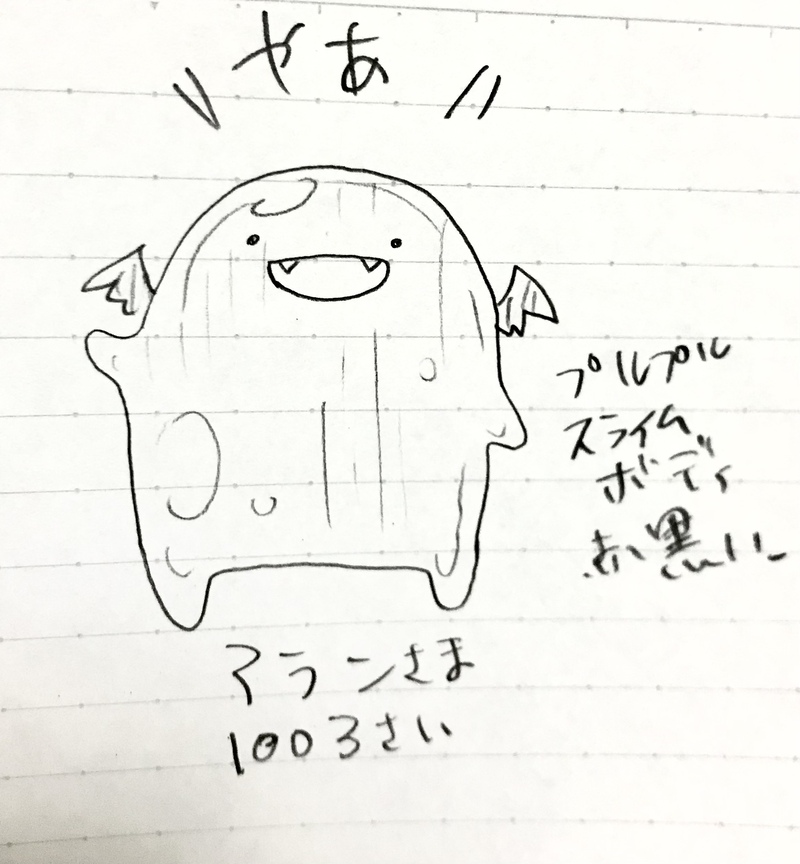 やあ
プルプル
スライム
ボディ
赤黒い
アランさま
1003さい